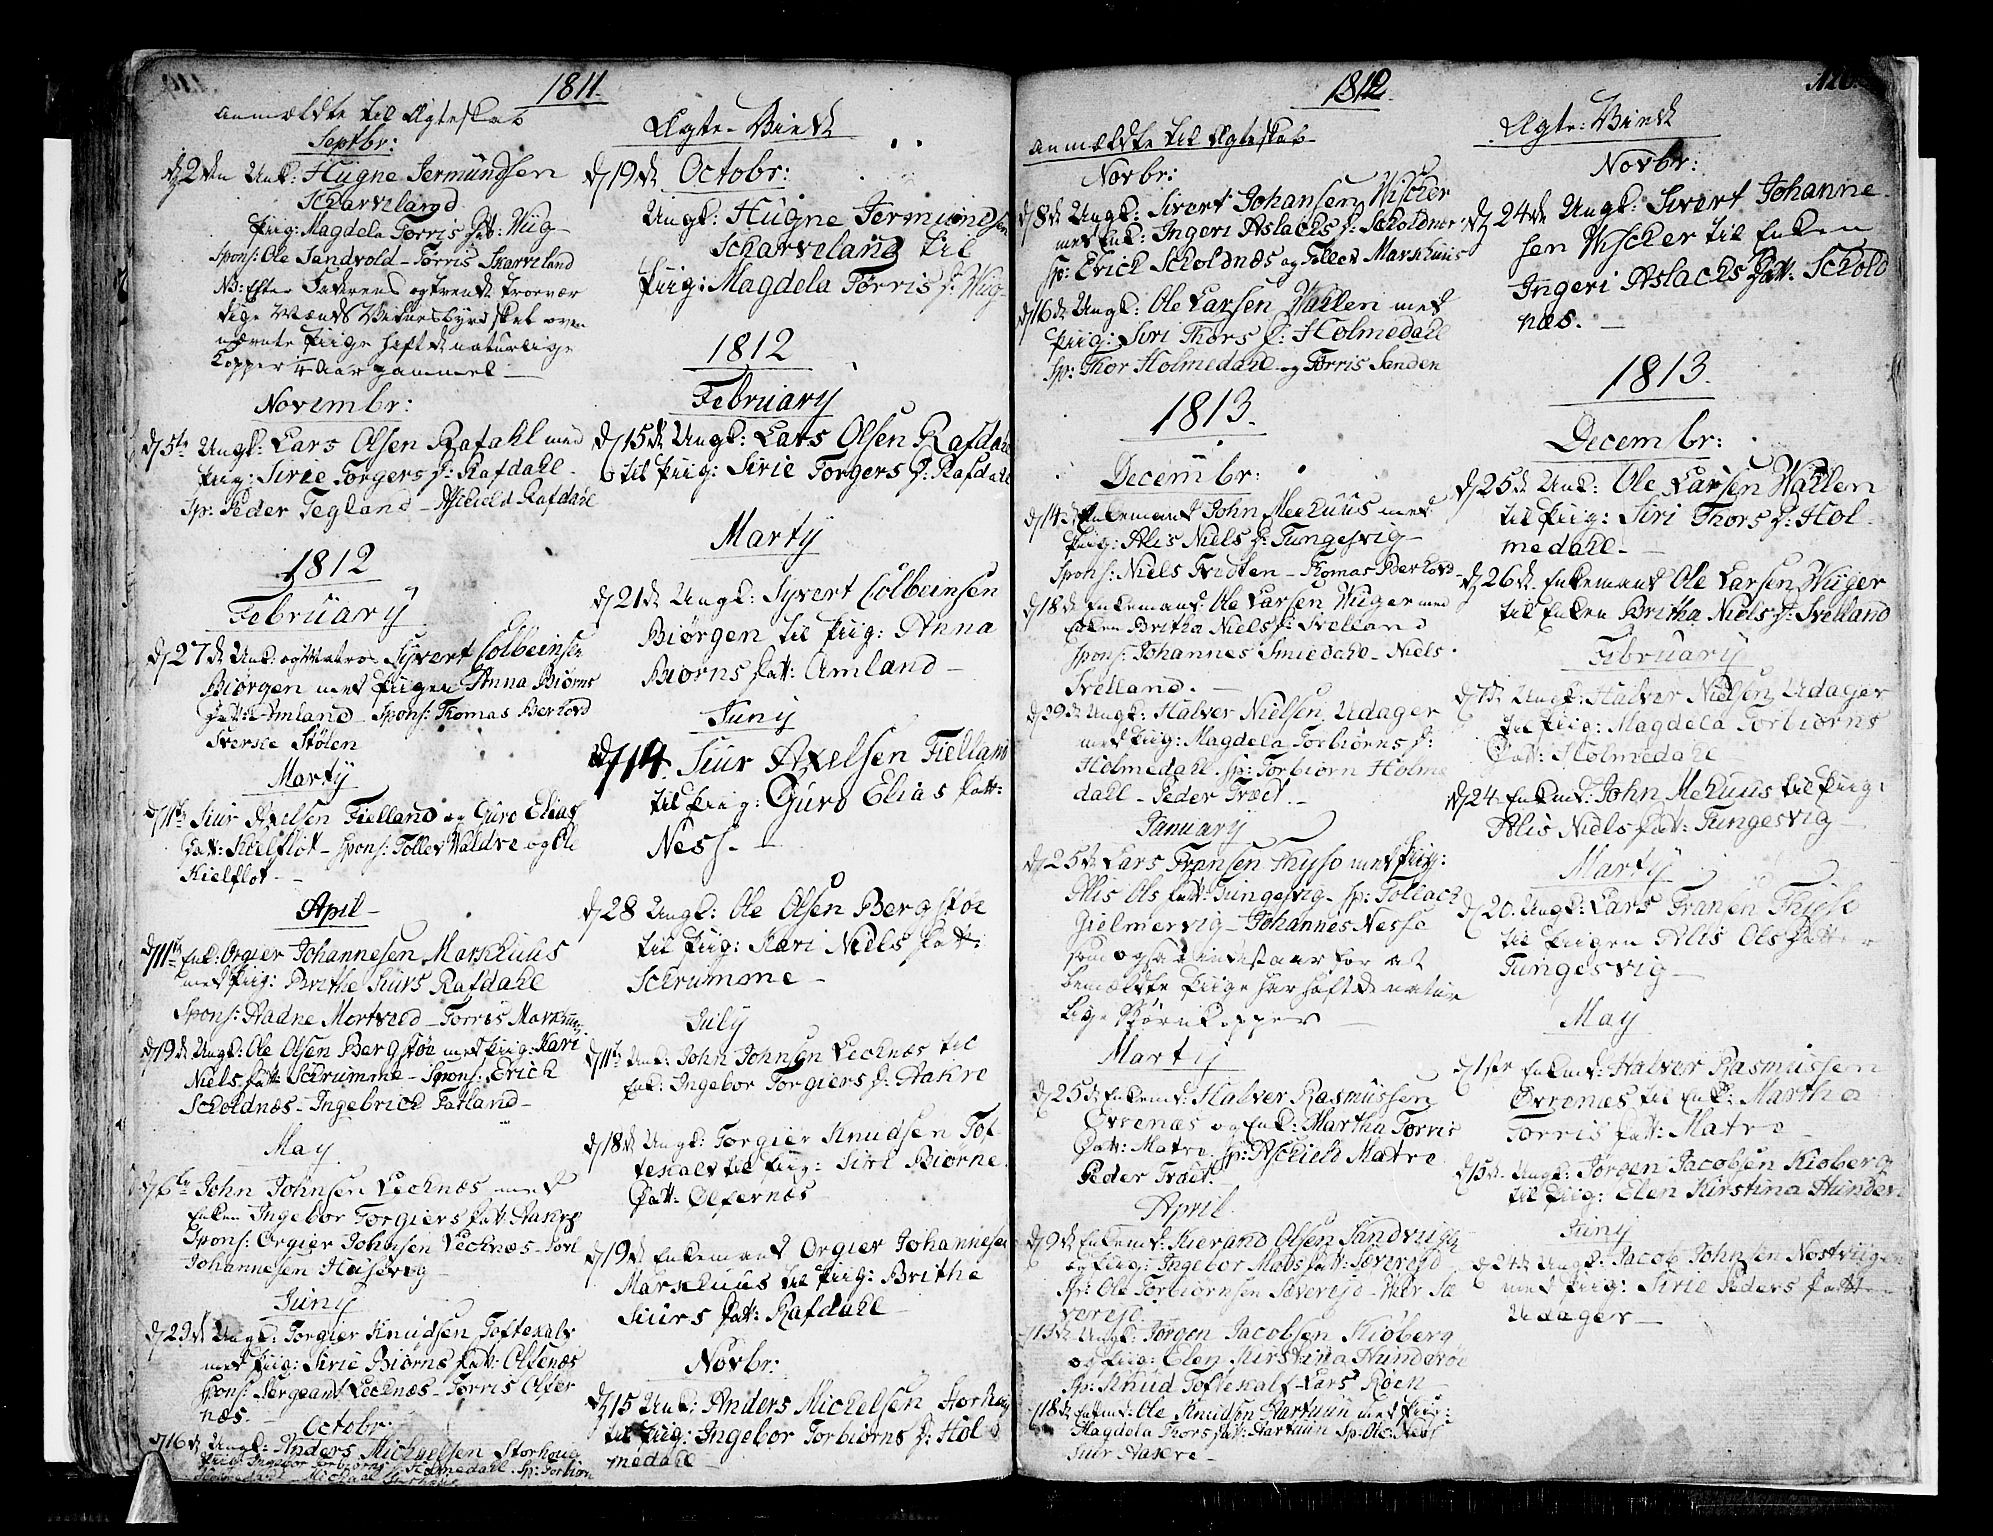 1811.
anmældte til Ægteskab
Septbr:
d 2den Unk: Hügne Jermundsen
Scharveland
Piig: Magdela Torris Dat: Wiig
Spons: Ole Sandvold - Torris Skarveland
NB: Efter Faderens og trende troevær
dige Mænds Vidnesbyrd skal oven
nævnte Piige haft de naturlige
Kopper 4 Aar gammel
Novembr:
d 5te Ungk: Lars Olsen Rafdahl med
Piig: Sirie Torgers D: Rafdahl
Sp: Peder Tegland - Aschield Rafdahl
1812
February
d 27de Unk: og Matros Syvert Colbeinsen
Biørgen med Piigen Anna Biørns
Dat: Amland - Spons: Thomas Berhovd
Sverke Stølen
Marty
d 11te Siur Axelsen Fielland og Guro Elias
Dat: Kielflot - Spons: Tollev Waldre og Ole
Kielflot -
April
d 11te Enk: Orgier Johannesen Markhuus
med Piig: Brithe Siurs Rafdahl
Spons: Aadne Mortved - Torris Markhuus
d 19de Ungk: Ole Olsen Bergstøe med Piig: Kari
Niels Dat: Schrumme - Spons: Erich
Scholdnæs - Ingebrich Fatland
May
d 6te John Johnsen Lecknæs med
Enken Ingebor Torgiers Dat: Aakre
Spons: Orgier Johnsen Lecknæs - Joel
Johannesen Huusevog
Juny
d 23de Ungk: Torgier Knudsen Toftekalv
med Piig: Sirie Biørns Dat: Olfernæs
Spons: Sergeant Lecknæs - Torris Olfer
næs.
Octobr:
d 16de Ungk: Anders Michaelsen Storhoug
Piig: Ingebor Torbiørns D: Holmedahl. Sp: Torbiørn
Holmedahl - Michael Storhoug
Ægte-Viede
d 19de Octobr:
Ungk: Hügne Jermundsen
Scharveland til
Piig: Magdela Torris D: Wiig
1812
February
d 15de Ungk: Lars Olsen Rafdahl
til Piig: Sirie Torgers D: Rafdahl
Marty
d 21de Ungk: Syvert Colbeinsen
Biørgen til Piig: Anna
Biørns Dat: Amland -
Juny
d 14. Siur Axelsen Fielland
til Piig: Guro Elias Dat:
Ness. -
d 28 Ungk: Ole Olsen Bergstøe
til Piig: Kari Niels Dat:
Schrumme -
July
d 11te Unk: John Johnsen Lecknæs til
Enk: Ingebor Torgiers D: Aakre
d 18de Ungk: Torgier Knudsen Tof
tekalv til Piig: Siri Biørne
Dat: Olfernæs
d 19de Enkemand Orgier Johannesen
Markhuus til Piig: Brithe
Siurs Dat: Rafdahl
Novbr:
d 15 Unk: Anders Michelsen Storhoug
til Piig: Ingebor Torbiørns D: Hol
medahl -
1812.
anmeldte til Ægteskab
Novbr:
d 8de Ungk: Sivert Johansen Wischer
med Enk: Ingeri Aslachs D: Scholdnes
Sp: Erich Scholdnæs og Tollev Markhuus
d 16de Ungk: Ole Larsen Wallen med
Piig: Siri Thors D: Holmedahl
Sp: Thor Holmedahl og Torris Sanden
1813.
Decembr:
d 14de Enkemand John Mehuus med
Piig: Alis Niels D: Tungesvig
Spons: Niels Tvedten - Thomas Berhovd
d 18de Enkemand: Ole Larsen Wiiger med
Enken Britha Niels D: Svelland
Spons: Johannes Smiedahl - Niels
Svelland. -
d 29de Ungk: Halver Nielsen Udager
med Piig: Magdela Torbiørns D:
Holmedahl. Sp: Torbiørn Holme
dahl - Peder Træet. -
January
d 25de Lars Fransen Thyso med Piig:
Alis Ols Dat: Tungesvig - Sp: Tollach
Gielmervig - Johannes Nesse
som ogsaa indestaar for at
bemeldte Piige har haft de natur
lige Børnkopper -
Marty
d 25de Enkemd: Halver Rasmussen
Øvrenæs og Enk: Martha Torris
Dat: Matre. Sp: Aschield Matre
Peder Træet.
April
d 9de Enkemd: Kierand Olsen Sandviig
og Piig: Ingebor Mads Dat: Sævereid
Sp: Ole Torbiørnsen Sævereid - Thor Sæ
vereid.
d 13de Ungk: Jørgen Jacobsen Kioberg
og Piig: Elen Kirstina Hunderøe
Sp: Knud Toftekalf - Lars Røen -
d 18de Enkemd: Ole Knudsen Hartuun med Piig:
Magdela Thors Dat: Hartuun Sp: Ole Næss
Siur Aasere -
120.
Ægte: Viede
Novbr:
d 24de Ungk: Sivert Johanne
sen Wischer til Enken
Ingeri Aslachs Dat: Schold
næs. -
1813.
Decembr:
d 25de Unk: Ole Larsen Wallen
til Piig: Siri Thors D: Hol
medahl. -
d 26de Enkemand Ole Larsen Wiiger
til Enken Britha Niels D: Svelland
February
d 7de Ungk: Halver Nielsen Udager
til Piig: Magdela Torbiørns
Dat: Holmedahl
d 24. Enkemd: John Mehuus til Piig:
Alis Niels Dat: Tungesvig -
Marty
d 20. Ungk: Lars Fransen Thieso
til Piigen Alis Ols Datter
Tungesvig -
May
d 1ste Enkemd: Halver Rasmussen
Øvrenæs til Enk: Martha
Torris Dat: Matre -
d 15de Ungk: Jørgen Jacobsen Kioberg
til Piig: Elen Kirstina Hunderøe
Juny
d 24de Ungk: Jacob Johnsen Nostviigen
med Piig: Sirie Peders Datter
Udager -